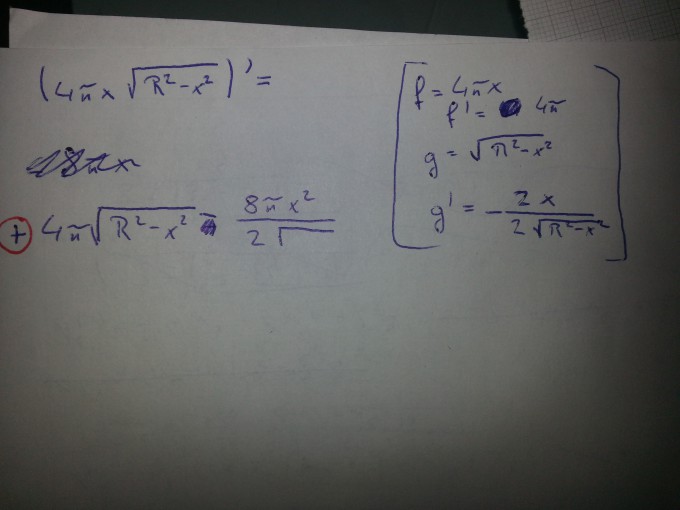 (4πx √(R²-x²))' =
+ 4π√(R²-x²) - 8πx² / 2√
f = 4πx
f' = 4π
g = √(R²-x²)
g' = - 2x / 2√(R²-x²)